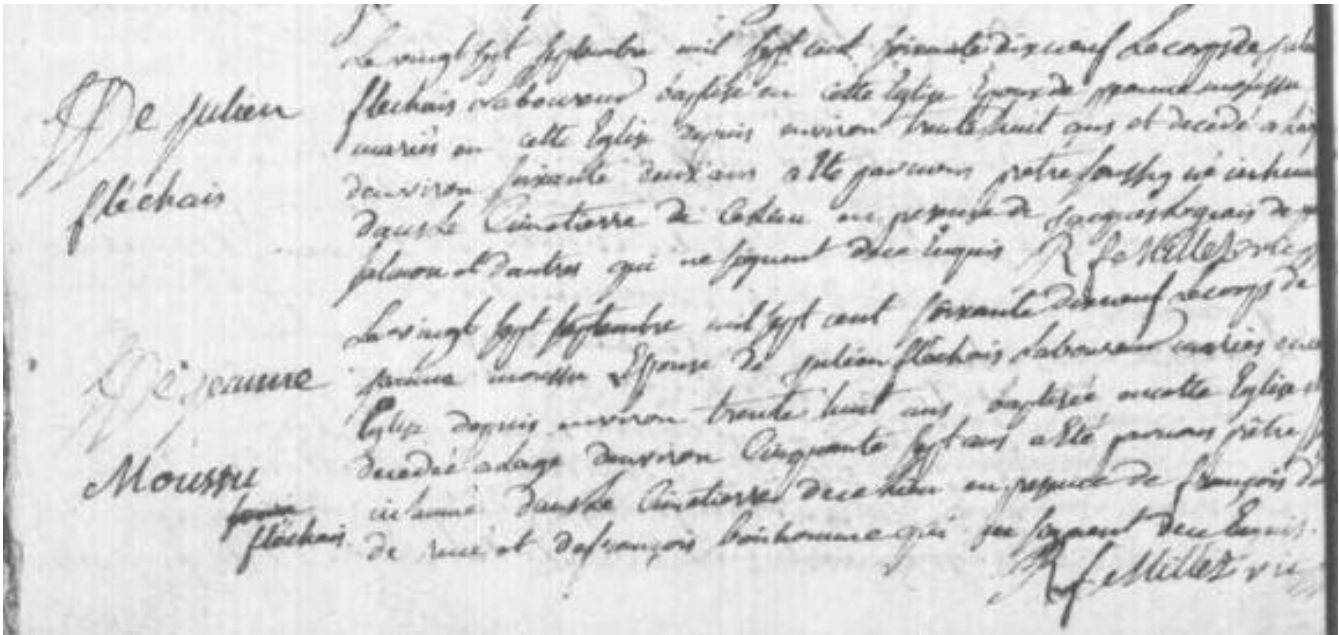 De julien
fléchais
Le vingt sept septembre mil sept cent soixante dix neuf Le corps de julien
fléchais Laboureur baptisé en cette Eglise Epoux de jeanne moussu
mariés en cette Eglise depuis environ trente huit ans et decedé a
denviron soixante deux ans a été par nous prêtre soussigné inhumé
dans Le Cimetierre de Ce Lieu en presence de jacques de
et dautres qui ne signent de ce Enquis R f Millet vic
De jeanne
Moussu
fléchais
Le vingt sept septembre mil sept cent soixante dix neuf Le corps de
jeanne moussu Epouse de julien fléchais Laboureur mariés en
Eglise depuis environ trente huit ans baptisée en cette Eglise
decedée a dage denviron Cinquante sept ans a été par nous prêtre
inhumé dans Le Cimetierre de ce Lieu en presence de françois
de et de françois bonhomme qui ne signent de ce Enquis.
R f Millet vic